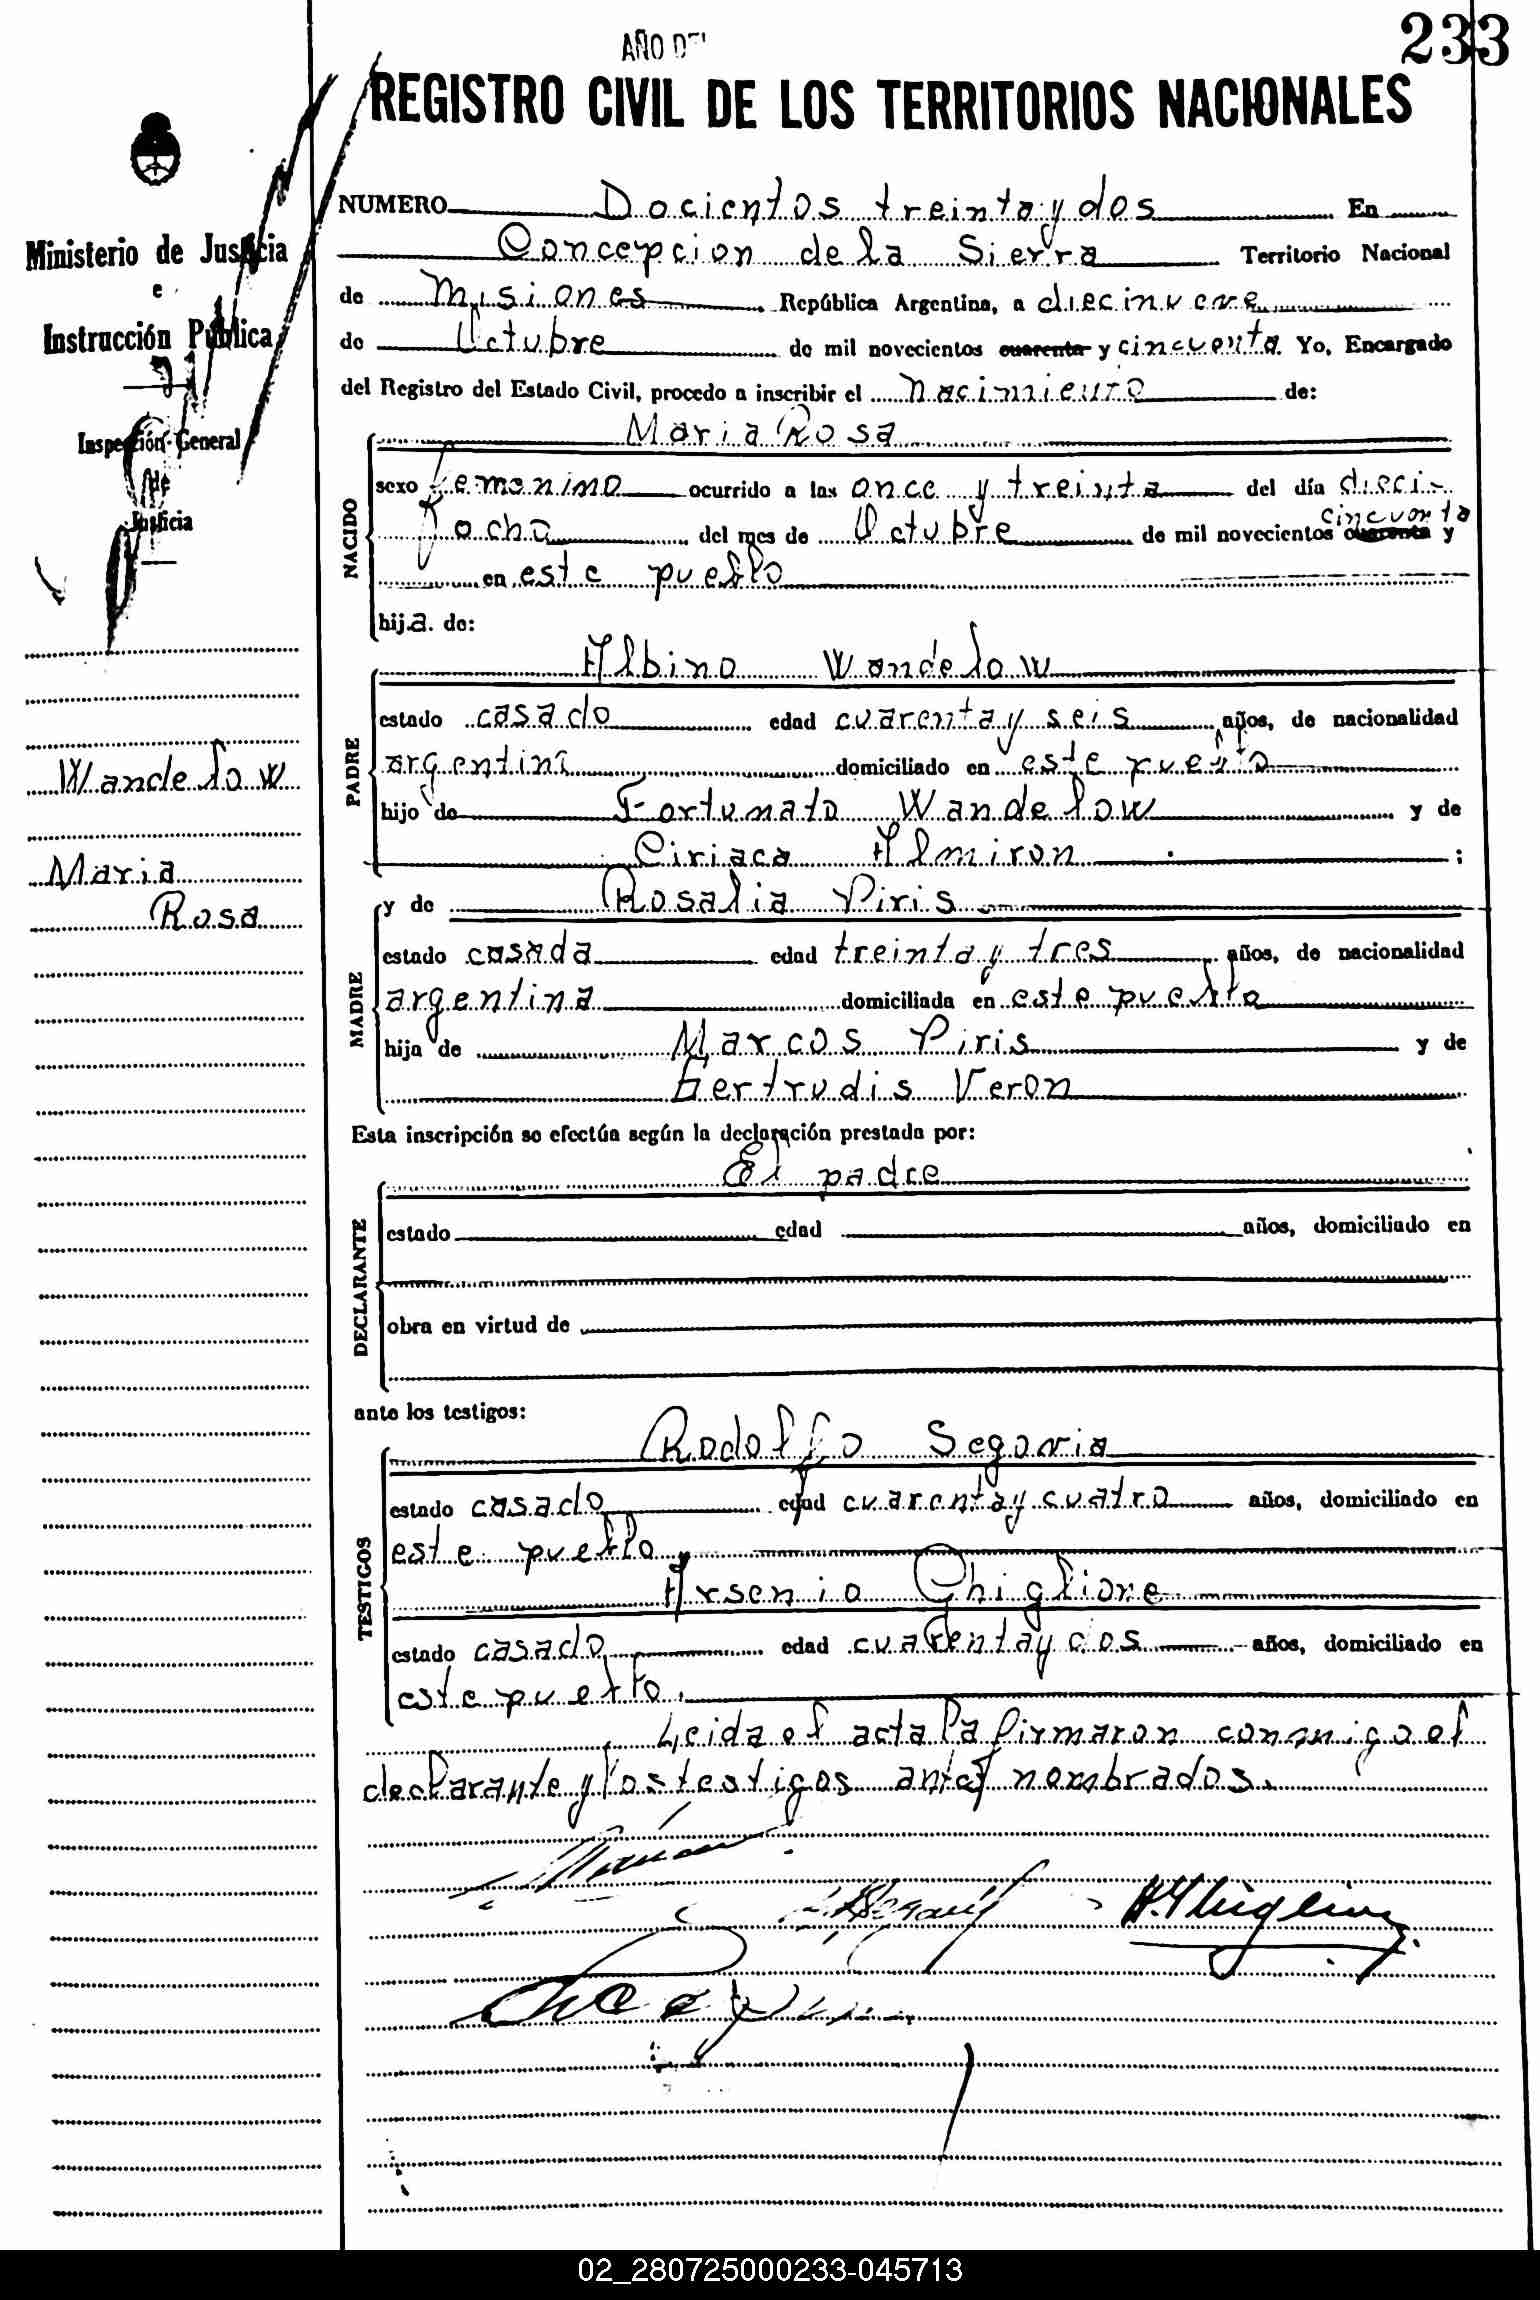 233
AÑO DEL
REGISTRO CIVIL DE LOS TERRITORIOS NACIONALES
Ministerio de Justicia
e
Instrucción Pública
Inspección General
de
Justicia
Wandelow
Maria
Rosa
NUMERO Docientos treinta y dos En
Concepcion de la Sierra Territorio Nacional
de Misiones República Argentina, a diecinueve
de Octubre de mil novecientos cuarenta y cincuenta Yo, Encargado
del Registro del Estado Civil, procedo a inscribir el nacimiento de:
NACIDO
Maria Rosa
sexo femenino ocurrido a las once y treinta del día dieci-
cincuenta
ocho del mes de Octubre de mil novecientos cuarenta y
en este pueblo
hija de:
PADRE
Albino Wandelow
estado casado edad cuarenta y seis años, de nacionalidad
argentina domiciliado en este pueblo
hijo de Fortunato Wandelow y de
Ciriaca Almiron ;
MADRE
y de Rosalia Piris
estado casada edad treinta y tres años, de nacionalidad
argentina domiciliada en este pueblo
hija de Marcos Piris y de
Gertrudis Veron
Esta inscripción se efectúa según la declaración prestada por:
DECLARANTE
El padre
estado edad años, domiciliado en
obra en virtud de
ante los testigos:
TESTIGOS
Rodolfo Segovia
estado casado edad cuarenta y cuatro años, domiciliado en
este pueblo
Arsenio Chiglione
estado casado edad cuarenta y dos años, domiciliado en
este pueblo.
Leida el acta la firmaron conmigo el
declarante y los testigos antes nombrados.
02_280725000233-045713